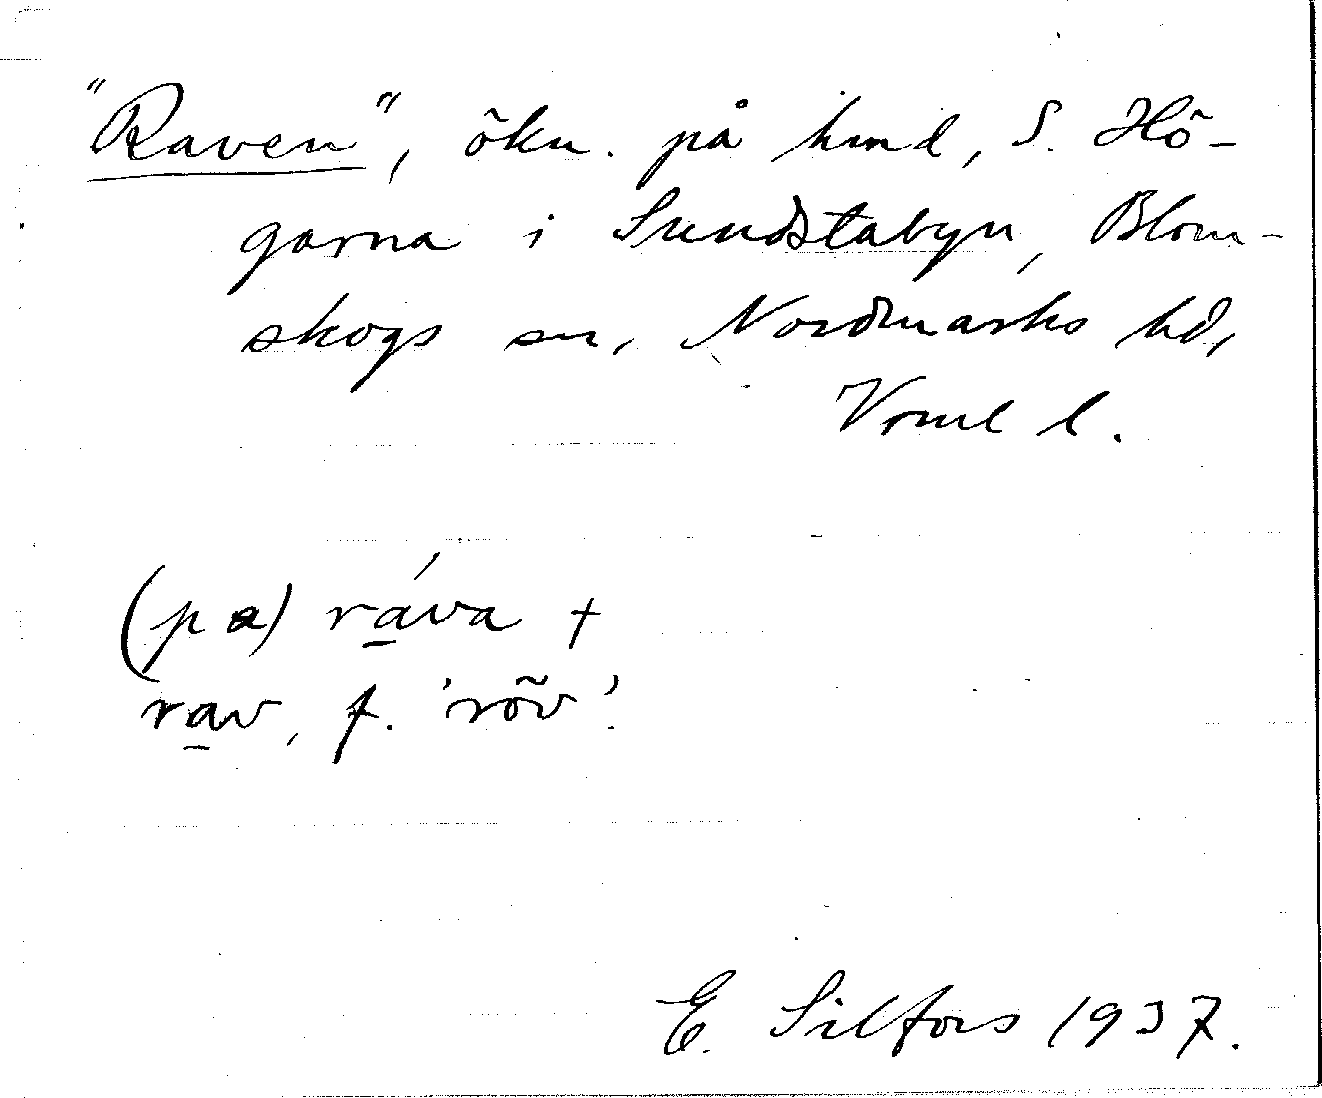 "Raven", ökn. på hmd, S. Hö-
garna i Sundstabyn, Blom-
skogs sn, Nordmarks hd,
Vrml l.
(pa) ráva +
rav, f. 'röv'.
E. Silfors 1937.